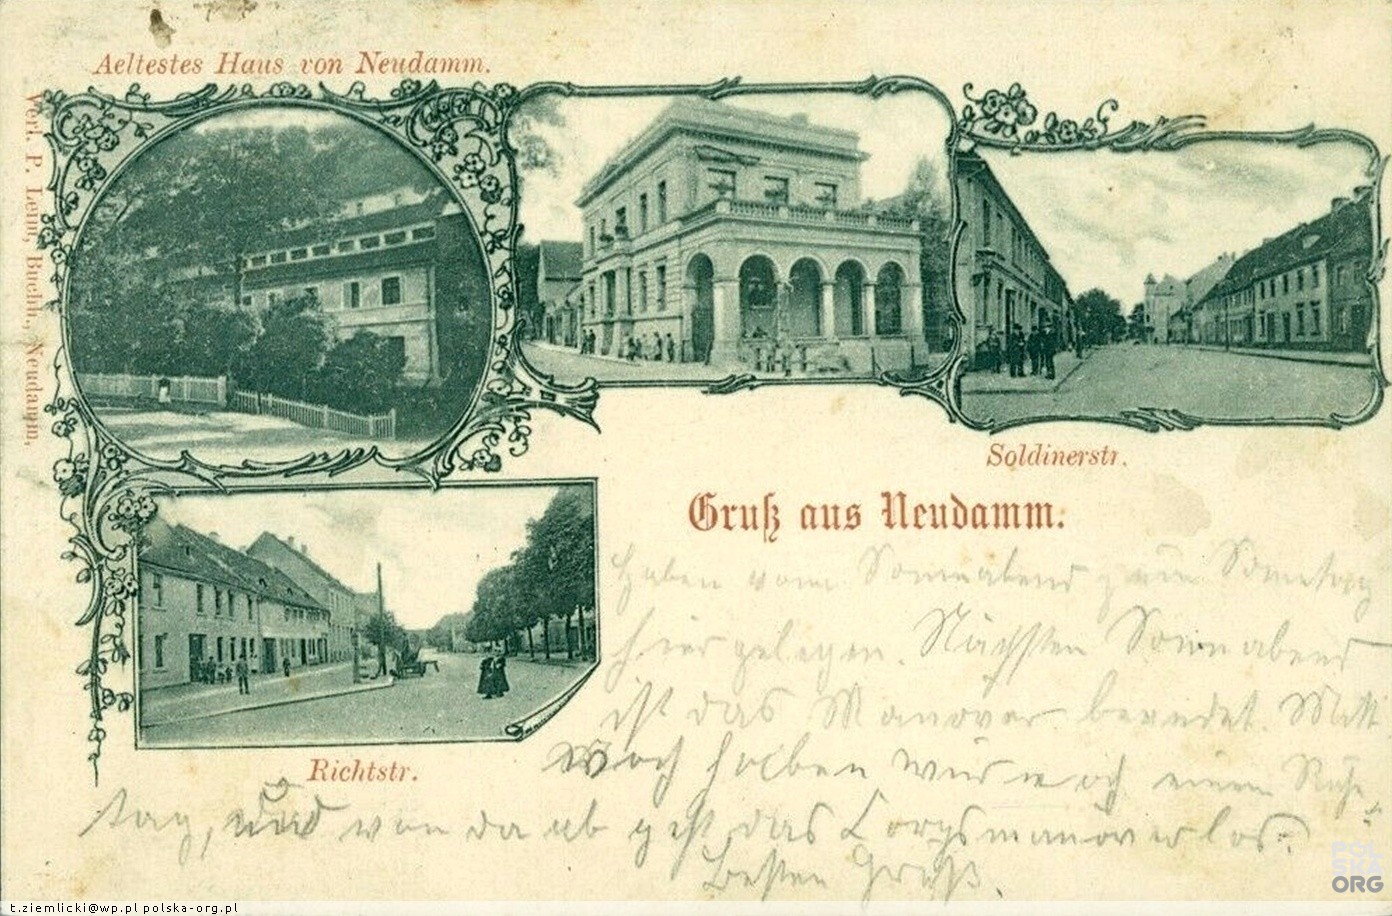 Aeltestes Haus von Neudamm.
Verl. P. Lemm, Buchh., Neudamm.
Soldinerstr.
Richtstr.
Gruß aus Neudamm.
Haben vom Sonnabend zum Sonntag
hier gelegen. Nächsten Sonnabend
ist das Manöver beendet. Mitt
woch haben wir noch einen Ruhe-
tag, und von da ab geht das Corpsmanöver los.
Besten Gruß.
POLSKA.ORG
t.ziemlicki@wp.pl polska-org.pl